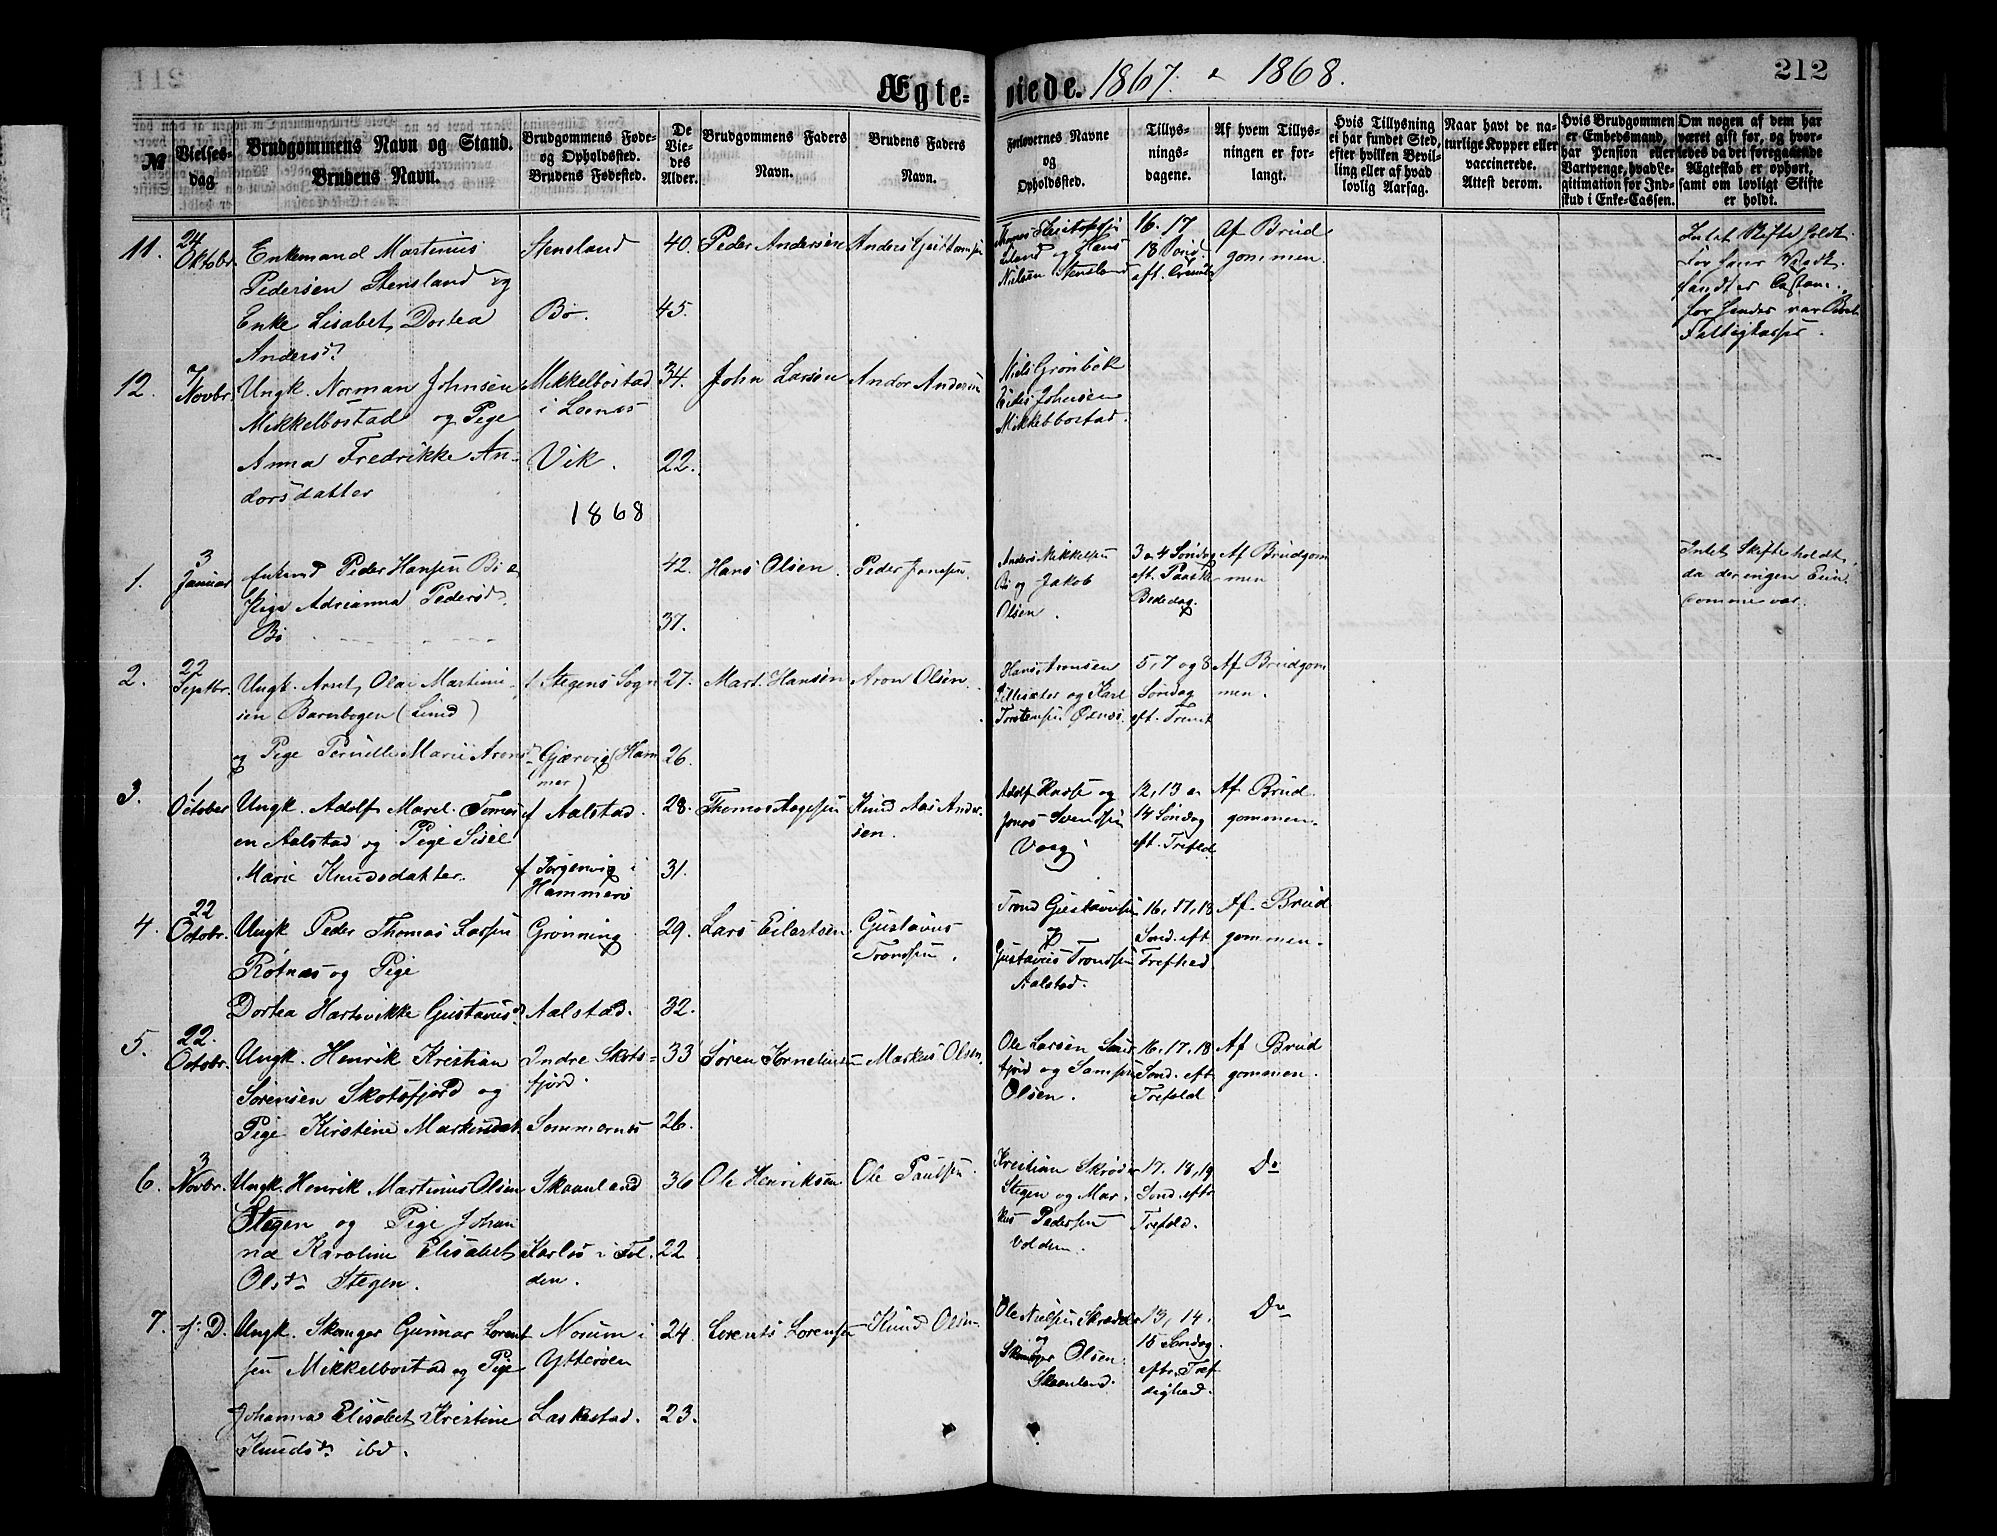 Ægteviede. 1867. & 1868.
212
№
Vielses-
dag.
Brudgommens Navn og Stand.
Brudens Navn.
Brudgommens Føde-
og Opholdssted.
Brudens Fødested.
De
Vie-
des
Alder.
Brudgommens Faders
Navn.
Brudens Faders
Navn.
Forlovernes Navne
og
Opholdssted.
Tillys-
nings-
dagene.
Af hvem Tillys-
ningen er for-
langt.
Hvis Tillysning
ei har fundet Sted,
efter hvilken Bevil-
ling eller af hvad
lovlig Aarsag.
Naar havt de na-
turlige Kopper eller
vaccinerede.
Attest derom.
Hvis Brudgommen
er Embedsmand,
har Pension eller
Vartpenge, hvad Le-
gitimation for Ind-
skud i Enke-Cassen.
Om nogen af dem har
været gift før, og hvor-
ledes da det foregaaende
Ægteskab er ophørt,
samt om lovligt Skifte
er holdt.
11.
24
Oktobr.
Enkemand Martinus
Pedersen Stensland og
Enke Lisabet Dortea
Andersd.
Stensland
Bø.
40.
45.
Peder Andersen
Nilsen Stensland
16. 17
18 Sønd.
Af Brud
gommen.
12.
7
Novbr.
Ungk. Norman Johnsen
Mikkelbostad og Pige
Anna Fredrikke An-
dorsdatter
Mikkelbostad
i Leenes
Vik.
34.
22.
John Larsen
Andor Andersen
Niels Grønbek
Johnsen
Mikkelbostad.
1868
1.
3
Januar
Peder Hansen Bø &
Pige Adrianna Pedersd.
Bø
42.
37.
Hans Olsen.
Peder Jensen.
Anders Mikkelsen
Bø og Jakob
Olsen.
3 & 4 Søndag
eft. Paaske
Bededag.
Af Brudgom
men
Intet Skifte holdt,
da der ingen Eien
domme var.
2.
22
Septbr.
Ungk. Arnt Olai Martini-
sen Barnbogen (Lund)
og Pige Pernille Marie Aronsd.
f Stegens Sogn
Gjærvig (Ham
mer)
27.
26.
Mart. Hansen
Aron Olsen
Hans Aronsen
Lillesæter og Karl
Torstensen
5, 7 og 8
Søndag
eft. Trenit
Af Brudgom
men.
3.
1
October
Ungk. Adolf Marel. Tomas
en Aalstad og Pige Sisel
Marie Knudsdatter.
f Aalstad.
f Jørgenvig i
Hammerø
28.
31.
Thomas Aagesen
Knud Aas Ander-
sen.
Adolf Hasse og
Jonas Svendsen
Vaag
12, 13 &
14 Søndag
eft. Trefold
Af Brud
gommen.
4.
22
Octobr.
Ungk Peder Thomas Larsen
Rotnæs og Pige
Dortea Hartvikke Gustavusd.
Grønning
Aalstad.
29.
32.
Lars Eilertsen.
Gustavus
Trondsen.
Trond Gustavusen
og
Gustavus Trondsen
Aalstad.
16, 17, 18
Sønd. eft
Trefhed
Af Brud
gommen.
5.
22.
Octobr.
Ungk. Henrik Kristian
Sørensen Skotsfjord og
Pige Kirstine Markusdat.
Indre Skots-
fjord.
Sommernes
33
26.
Søren Kornelius
Markus Olsen.
Ole Larsen
fjord og
Olsen.
16, 17, 18
Sønd. eft
Trefold
Af Brud
gommen.
6.
3
Novbr.
Ungk. Henrik Martinus Olsen
Stegen og Pige Johan
na Karoline Elisabet
Olsd. Stegen.
Skaanland
Karlos i Fol
den.
36
22
Ole Henriksen
Ole Paulsen.
Kristian Skrøder
Stegen og Mar-
kus Pedersen
Volden.
17, 18, 19
Sønd. eftr
Trefold.
Do
7.
s: D.
Ungk. Skanger Gunnar Lorent
sen Mikkelbostad og Pige
Johanna Elisabet Kristine
Knudsd. ibd.
Norum i
Ytterøen
Laskestad.
24
23.
Lorents Lorensen
Knud Olsen
Ole Nielsen Skrædder
og
Skanger Olsen
Skaanland.
13, 14,
15 Søndag
eftr. Tref
dighed.
Do